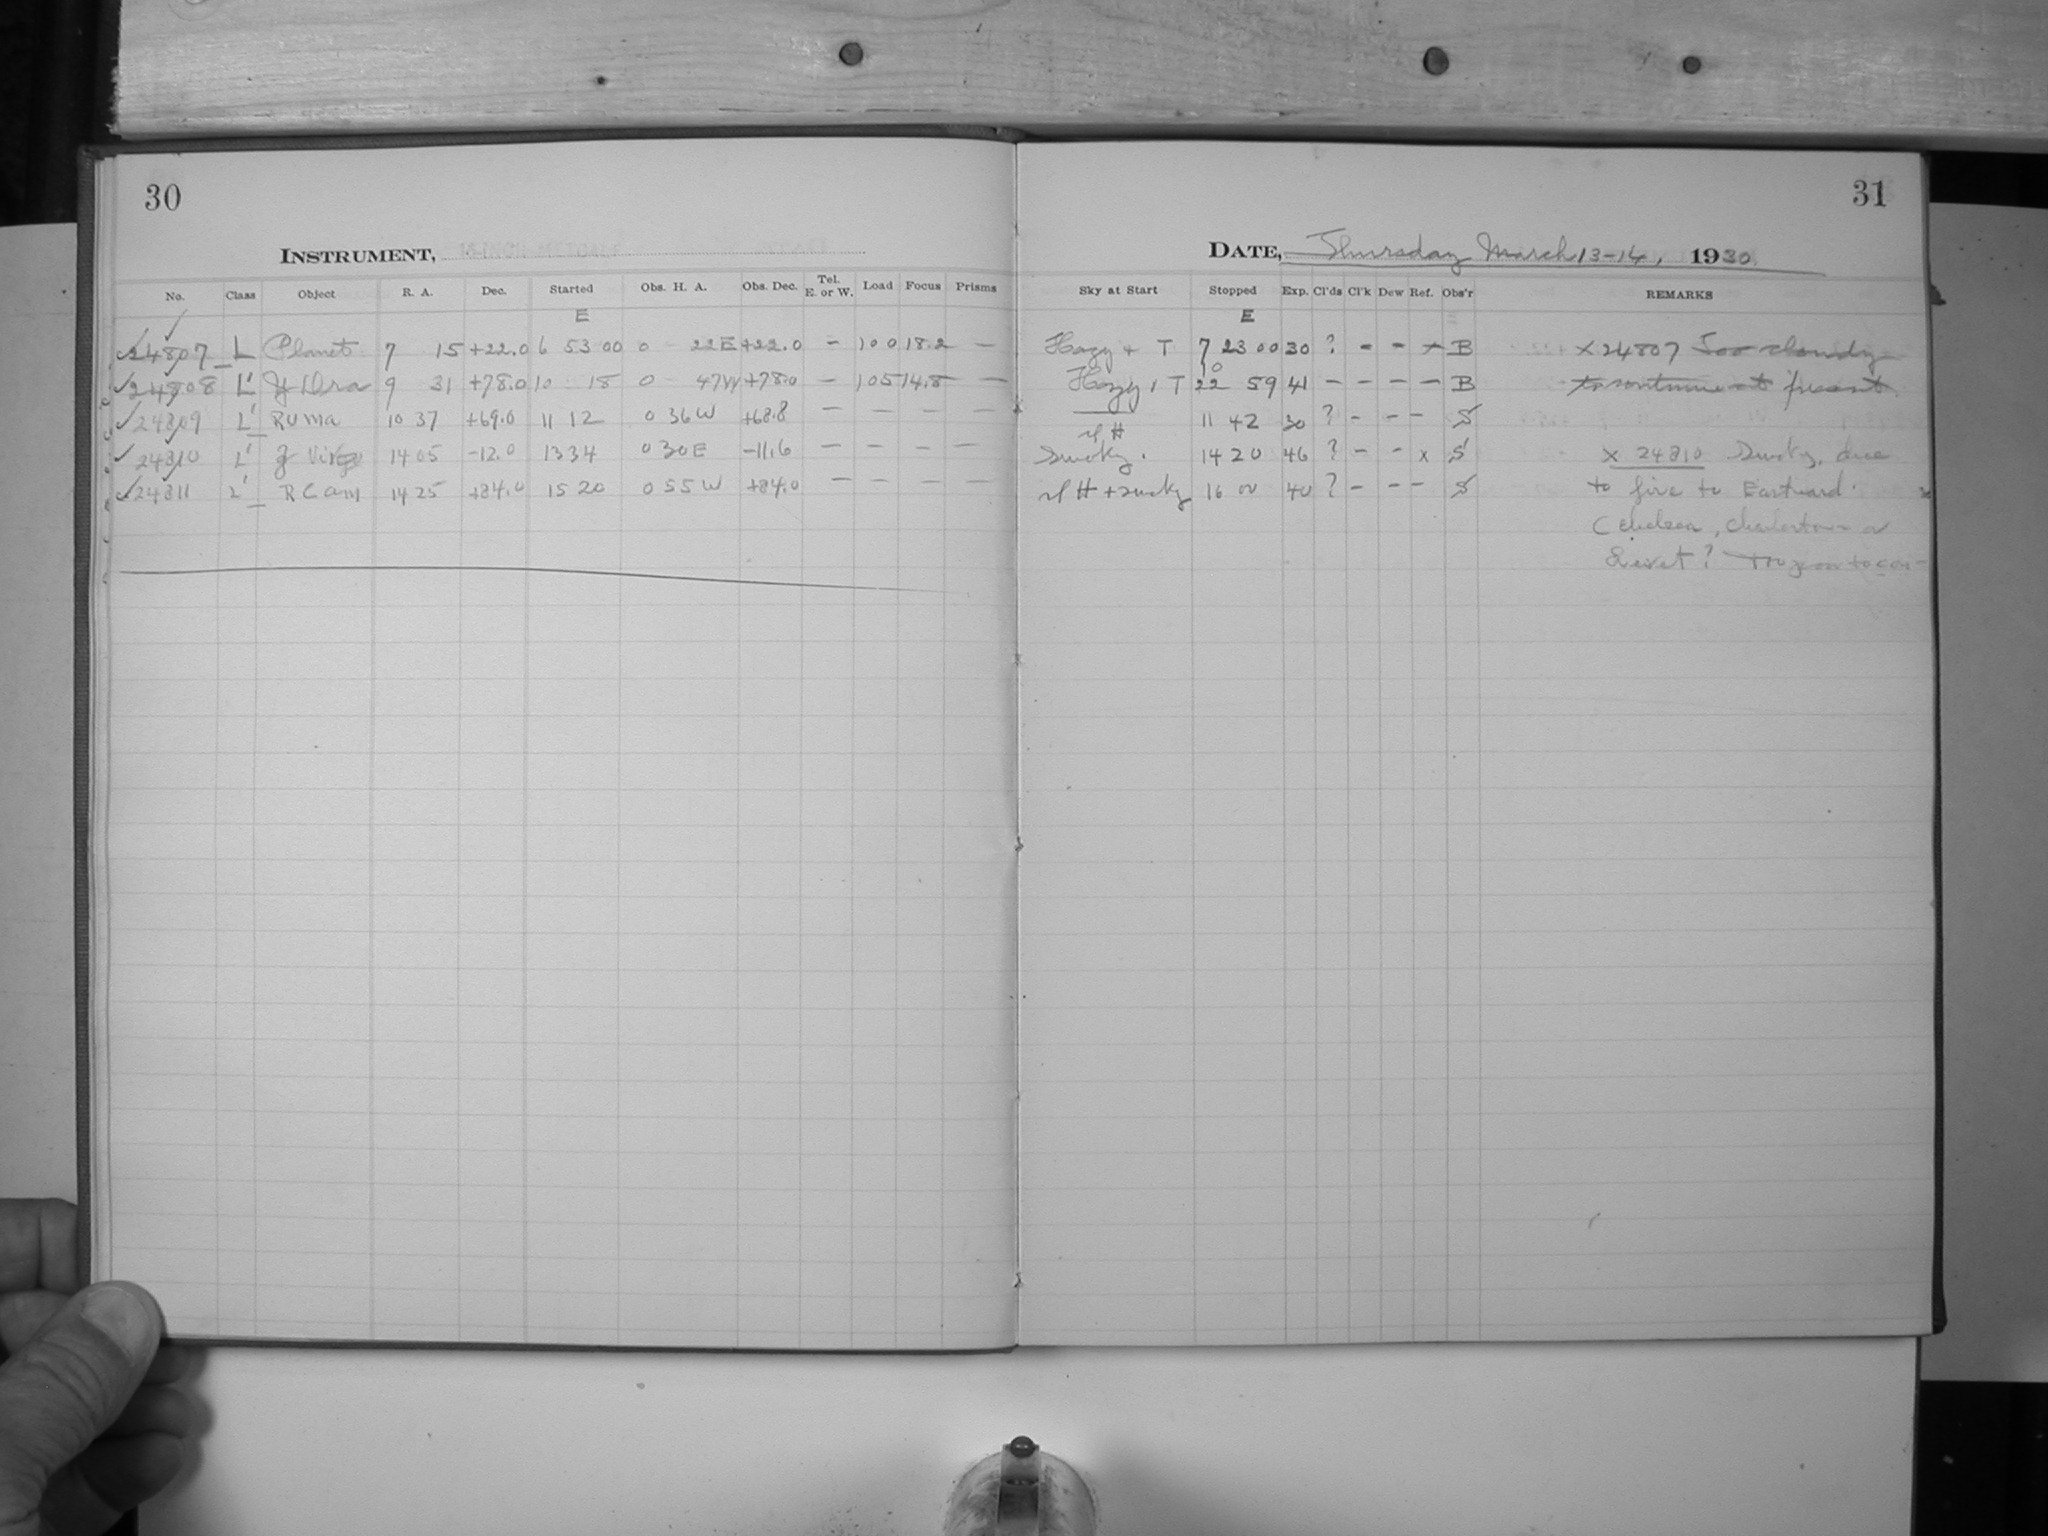 30
INSTRUMENT,
No. Class Object R. A. Dec. Started Obs. H. A. Obs. Dec. Tel. E. or W. Load Focus Prisms
E
24807 L Planet 7 15 +22.0 6 53 00 0 22E +22.0 — 100 18.2 —
24808 L' Dra 9 31 +78.0 10 18 0 47W +78.0 — 105 14.8 —
24809 L' RUMa 10 37 +69.0 11 12 0 36W +68.8 — — — —
24810 L' 14 05 -12.0 13 34 0 30E -11.6 — — — —
24811 L' R Cam 14 25 +84.0 15 20 0 55W +84.0 — — — —
31
DATE, Thursday March 13-14, 1930
Sky at Start Stopped Exp. Cl'ds Cl'k Dew Ref. Obs'r REMARKS
E
Hazy + T 7 23 00 30 ? - - x B x 24807 Too cloudy
Hazy, T 10 22 59 41 - - - - B to continue at present
11 42 30 ? - - - S
Smoky. 14 20 46 ? - - x S x 24810 Smoky, due
H + smoky 16 00 40 ? - - - S to fire to Eastward.
(Chelsea, Charlestown or
?